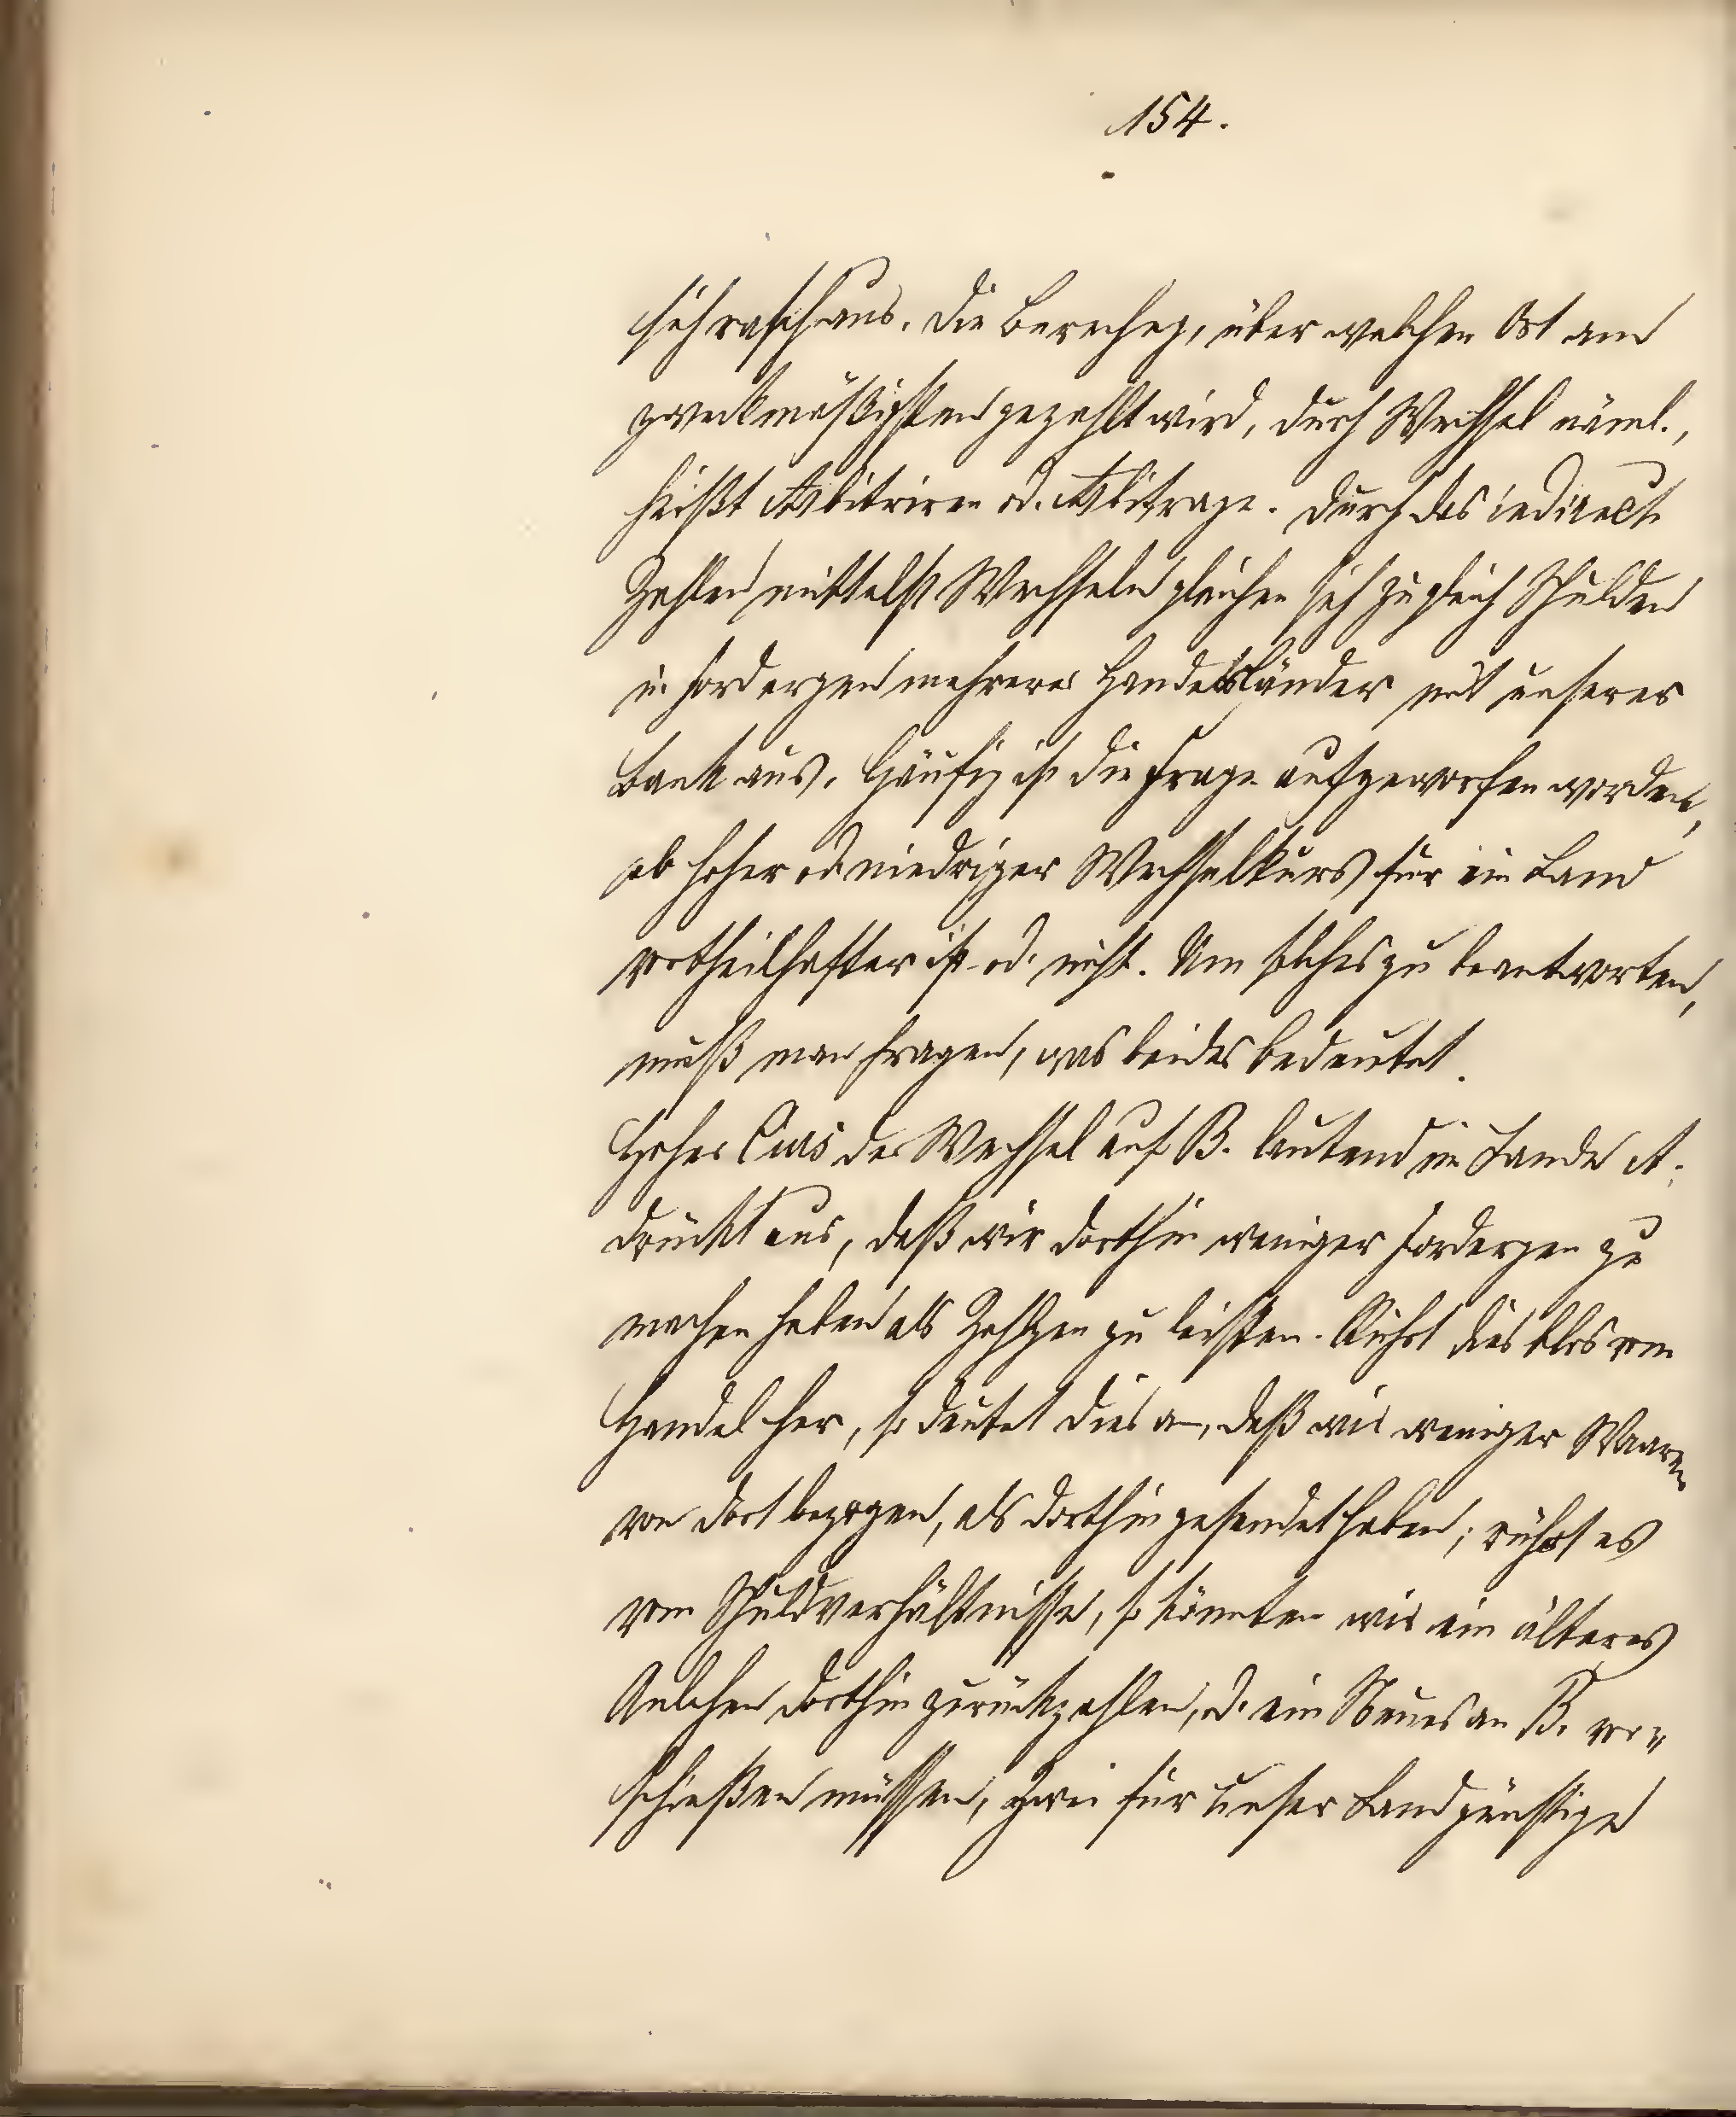 154.
sich rasch aus. Die Berechng, über welchen Ort am
zweckmäßigsten gezahlt wird, durch Wechsel näml.,
heißt Arbitriren od. Arbitrage. Durch das indirecte
Zahlen mittelst Wechseln gleichen sich zugleich Schulden
u. Fordergen mehrerer Handelsländer mit unserer
Bank aus. Häufig ist die Frage aufgeworfen worden,
ob hoher od. niedriger Wechselkurs für ein Land
vortheilhafter ist od. nicht. Um solches zu beantworten,
muß man fragen, was beides bedeutet.
Hoher Curs der Wechsel auf B. lautend im Lande A.
drückt aus, daß wir dorthin weniger Fordergen zu
machen haben als Zahlgen zu leisten. Rührt dies blos vom
Handel her, so deutet dies an, daß wir weniger Waaren
von dort bezogen, als dorthin gesendet haben; rührt es
vom Schuldverhältnisse, so könnten wir ein älteres
Anlehen dorthin zurückzahlen, od. ein Neues an B. vor-
schießen müssen, zwei für unser Land günstige